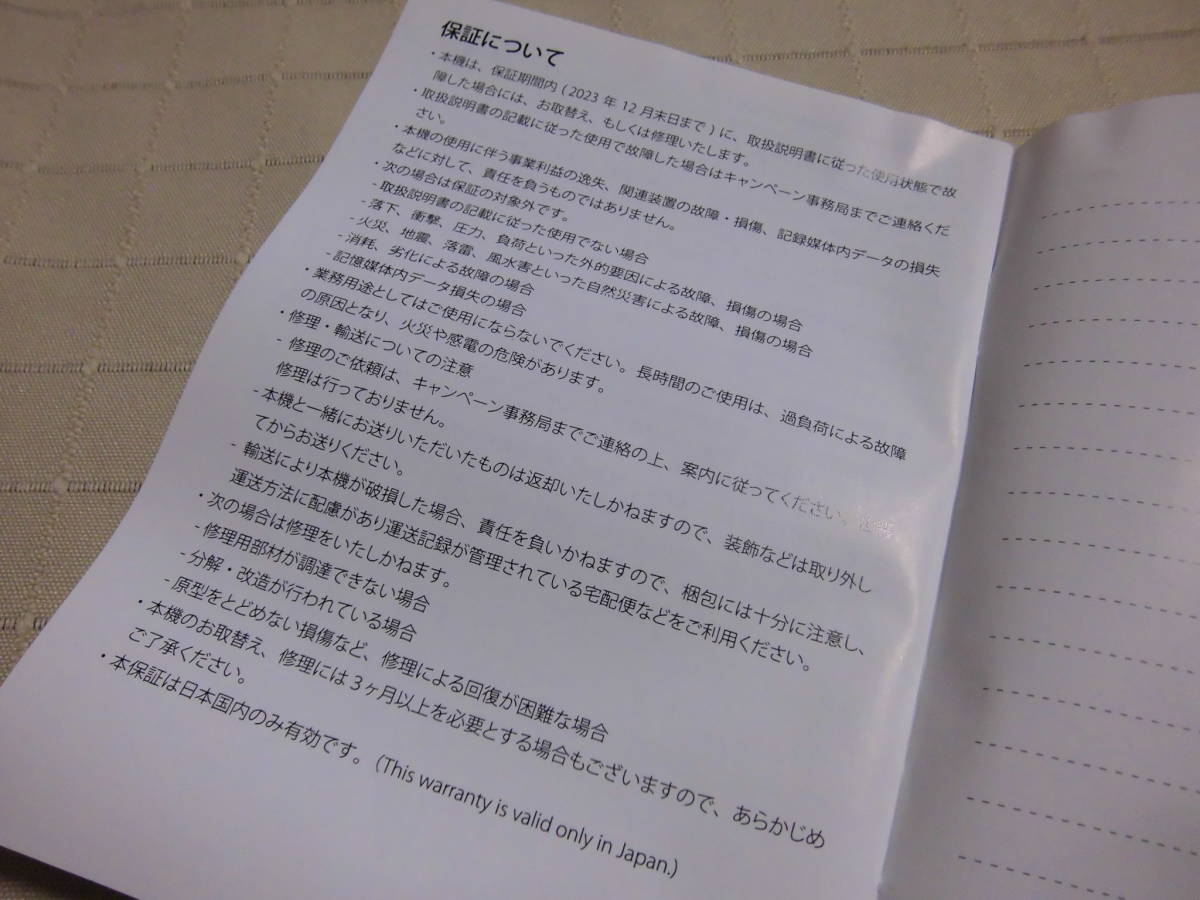 保証について
・本機は、保証期間内 ( 2023 年 12 月末日まで ) に、取扱説明書に従った使用状態で故
障した場合には、お取替え、もしくは修理いたします。
・取扱説明書の記載に従った使用で故障した場合はキャンペーン事務局までご連絡くだ
さい。
・本機の使用に伴う事業利益の逸失、関連装置の故障・損傷、記録媒体内データの損失
などに対して、責任を負うものではありません。
・次の場合は保証の対象外です。
- 取扱説明書の記載に従った使用でない場合
- 落下、衝撃、圧力、負荷といった外的要因による故障、損傷の場合
- 火災、地震、落雷、風水害といった自然災害による故障、損傷の場合
- 消耗、劣化による故障の場合
- 記憶媒体内データ損失の場合
・業務用途としてはご使用にならないでください。長時間のご使用は、過負荷による故障
の原因となり、火災や感電の危険があります。
・修理・輸送についての注意
- 修理のご依頼は、キャンペーン事務局までご連絡の上、案内に従ってください。
修理は行っておりません。
- 本機と一緒にお送りいただいたものは返却いたしかねますので、装飾などは取り外し
てからお送りください。
- 輸送により本機が破損した場合、責任を負いかねますので、梱包には十分に注意し、
運送方法に配慮があり運送記録が管理されている宅配便などをご利用ください。
・次の場合は修理をいたしかねます。
- 修理用部材が調達できない場合
- 分解・改造が行われている場合
- 原型をとどめない損傷など、修理による回復が困難な場合
・本機のお取替え、修理には 3 ヶ月以上を必要とする場合もございますので、あらかじめ
ご了承ください。
・本保証は日本国内のみ有効です。(This warranty is valid only in Japan.)